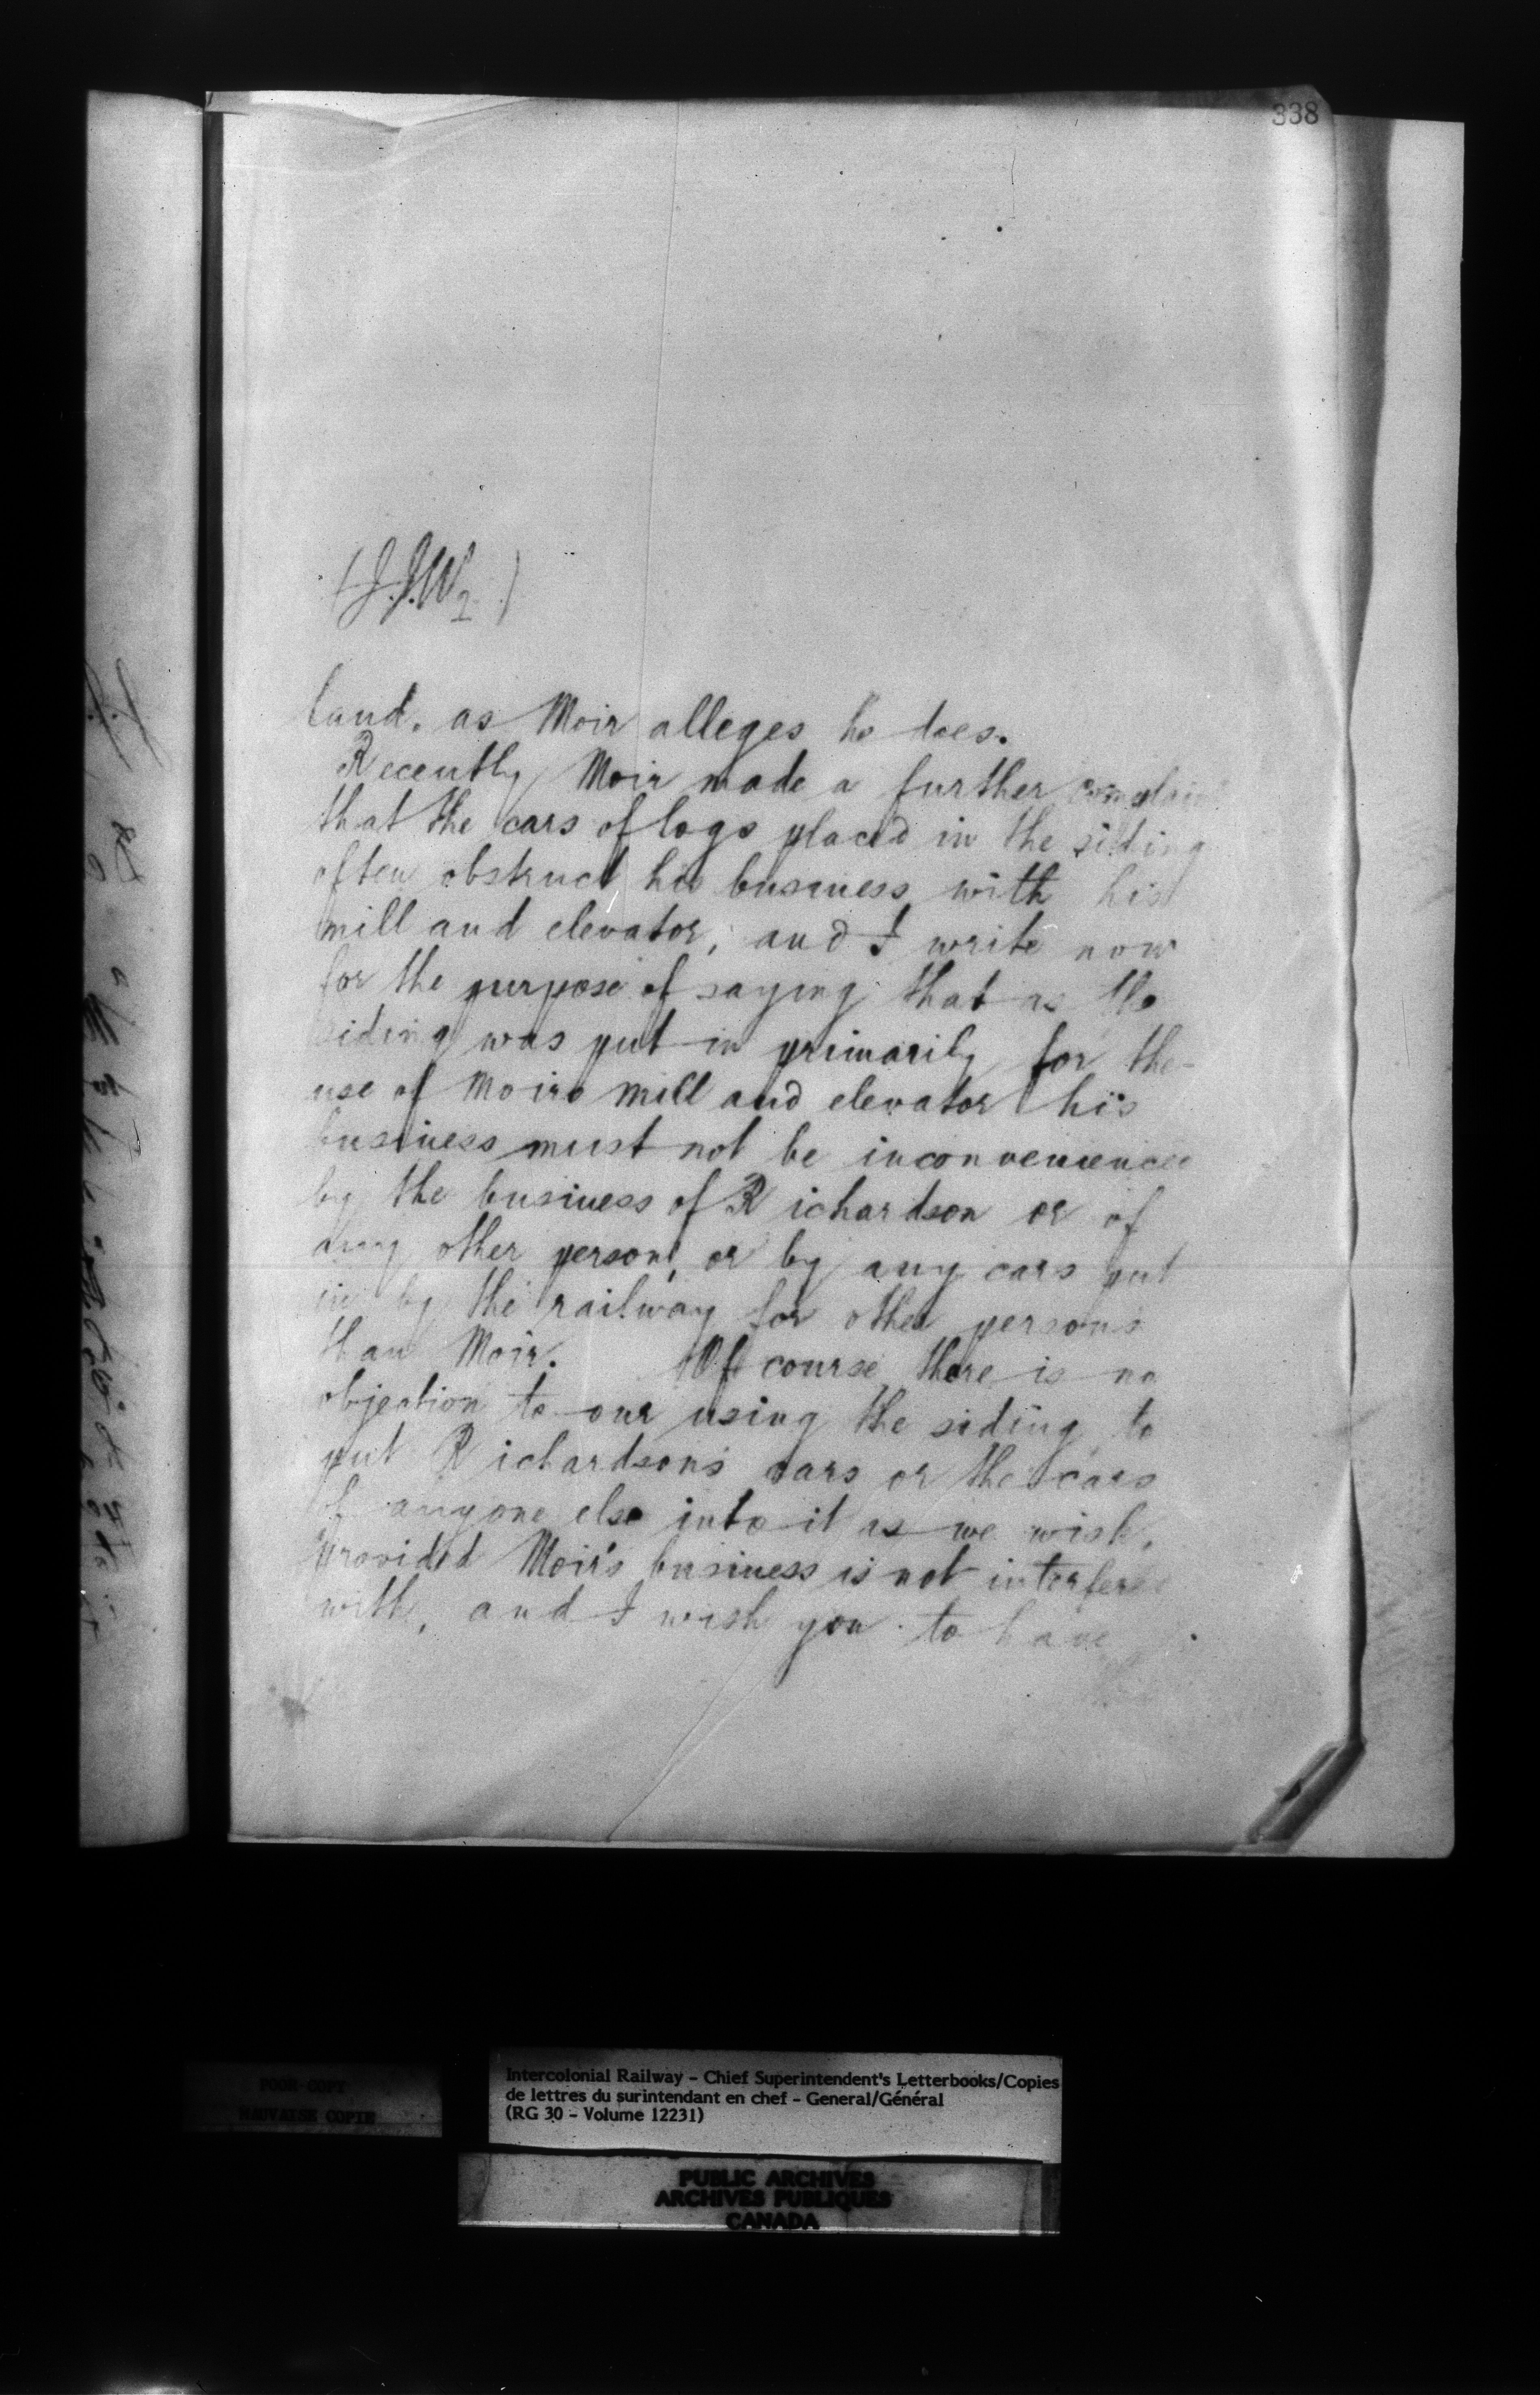 338
(J.J.W. 2.)
land. as Moir alleges he does.
Recently Moir made a further complaint
that the cars of logs placed in the siding
often obstruct his business with his
mill and elevator, and I write now
for the purpose of saying that as the
siding was put in primarily for the
use of Moirs mill and elevator his
business must not be inconvenienced
by the business of Richardson or of
any other person, or by any cars put
in by the railway for other persons
than Moir. Of course there is no
objection to our using the siding to
put Richardson's cars or the cars
of anyone else into it as we wish,
provided Moir's business is not interfered
with, and I wish you to have
POOR COPY
MAUVAISE COPIE
Intercolonial Railway - Chief Superintendent's Letterbooks/Copies
de lettres du surintendant en chef - General/Général
(RG 30 - Volume 12231)
PUBLIC ARCHIVES
ARCHIVES PUBLIQUES
CANADA